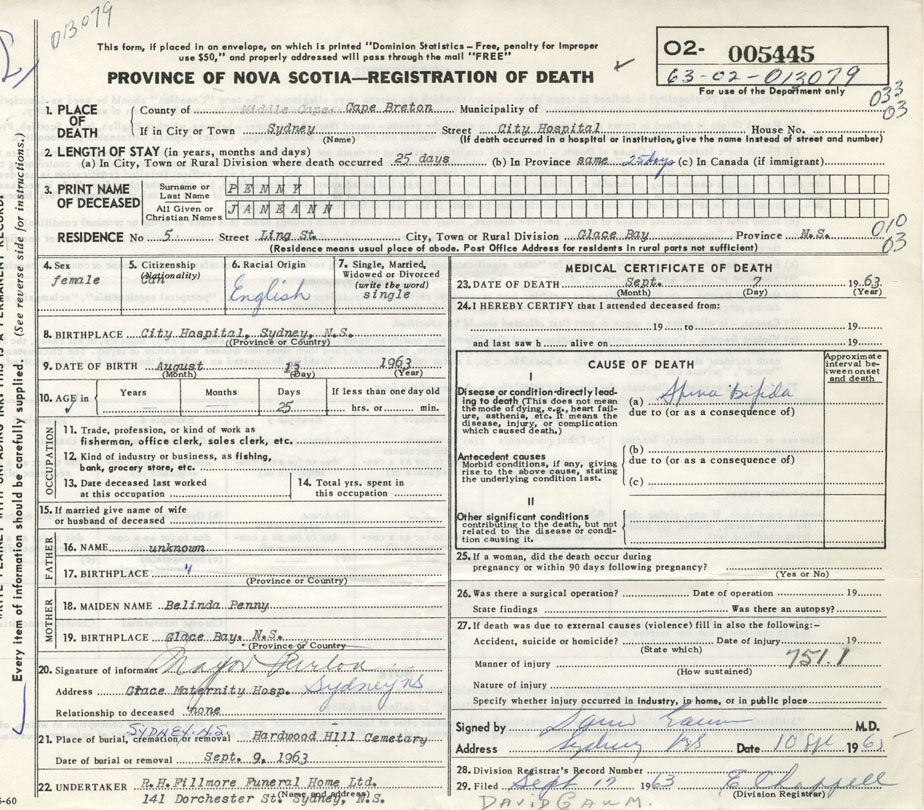 013079
This form, if placed in an envelope, on which is printed "Dominion Statistics – Free, penalty for improper
use $50," and properly addressed will pass through the mail "FREE"
PROVINCE OF NOVA SCOTIA—REGISTRATION OF DEATH
02- 005445
63-02-013079
For use of the Department only
033
03
1. PLACE OF DEATH
County of Cape Breton Municipality of
If in City or Town Sydney Street City Hospital House No.
(Name) (If death occurred in a hospital or institution, give the name instead of street and number)
2. LENGTH OF STAY (in years, months and days)
(a) In City, Town or Rural Division where death occurred 25 days (b) In Province same 25 days (c) In Canada (if immigrant)
3. PRINT NAME OF DECEASED
Surname or Last Name PENNY
All Given or Christian Names JANEANN
RESIDENCE No 5 Street Ling St. City, Town or Rural Division Glace Bay Province N.S.
(Residence means usual place of abode. Post Office Address for residents in rural parts not sufficient)
010
03
4. Sex
female
5. Citizenship
(Nationality)
can
6. Racial Origin
English
7. Single, Married,
Widowed or Divorced
(write the word)
single
8. BIRTHPLACE City Hospital, Sydney, N.S.
(Province or Country)
9. DATE OF BIRTH August 13 1963
(Month) (Day) (Year)
10. AGE in
Years Months Days If less than one day old
25 hrs. or min.
OCCUPATION
11. Trade, profession, or kind of work as
fisherman, office clerk, sales clerk, etc.
12. Kind of industry or business, as fishing,
bank, grocery store, etc.
13. Date deceased last worked
at this occupation
14. Total yrs. spent in
this occupation
15. If married give name of wife
or husband of deceased
FATHER
16. NAME unknown
17. BIRTHPLACE "
(Province or Country)
MOTHER
18. MAIDEN NAME Belinda Penny
19. BIRTHPLACE Glace Bay, N.S.
(Province or Country)
20. Signature of informant Major
Address Grace Maternity Hosp. Sydney NS
Relationship to deceased none
SYDNEY. N.S.
21. Place of burial, cremation or removal Hardwood Hill Cemetary
Date of burial or removal Sept. 9, 1963
22. UNDERTAKER R.H.Fillmore Funeral Home Ltd.
(Name and address)
141 Dorchester St. Sydney, N.S.
MEDICAL CERTIFICATE OF DEATH
23. DATE OF DEATH Sept. 7 1963
(Month) (Day) (Year)
24. I HEREBY CERTIFY that I attended deceased from:
19 to 19
and last saw h alive on 19
CAUSE OF DEATH
Approximate
interval between
onset
and death
I
Disease or condition directly leading
to death (This does not mean
the mode of dying, e.g., heart failure,
asthenia, etc. It means the
disease, injury, or complication
which caused death.)
(a) Spina Bifida
due to (or as a consequence of)
Antecedent causes
Morbid conditions, if any, giving
rise to the above cause, stating
the underlying condition last.
(b)
due to (or as a consequence of)
(c)
II
Other significant conditions
contributing to the death, but not
related to the disease or condition
causing it.
25. If a woman, did the death occur during
pregnancy or within 90 days following pregnancy?
(Yes or No)
26. Was there a surgical operation? Date of operation 19
State findings Was there an autopsy?
27. If death was due to external causes (violence) fill in also the following:-
Accident, suicide or homicide? Date of injury 19
(State which)
Manner of injury 751.1
(How sustained)
Nature of injury
Specify whether injury occurred in industry, in home, or in public place
Signed by M.D.
Address Sydney NS Date 10 196
28. Division Registrar's Record Number
29. Filed Sept 17 1963 E. Chappell
(Division Registrar)
DAVID GAUM.
Every item of information should be carefully supplied. (See reverse side for instructions.)
6-60